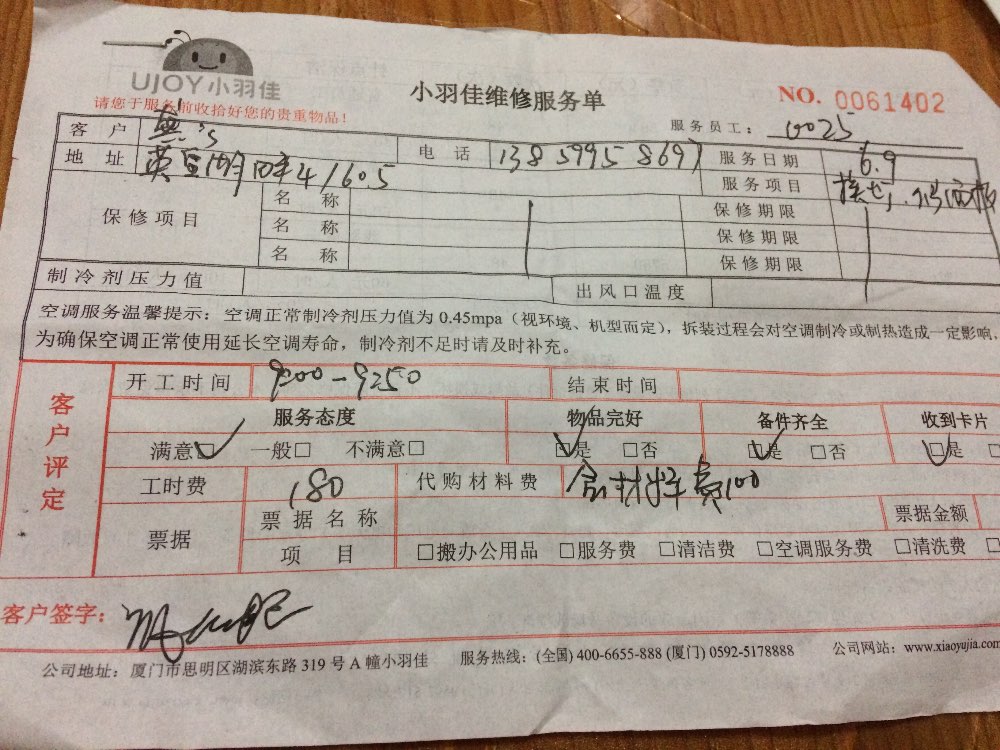 UJOY小羽佳
小羽佳维修服务单
NO. 0061402
请您于服务前收拾好您的贵重物品!
服务员工: 0025
客户
电话 13859958697
服务日期 6.9
地址 4/605
服务项目
保修项目 名称 保修期限
名称 保修期限
名称 保修期限
制冷剂压力值 出风口温度
空调服务温馨提示:空调正常制冷剂压力值为0.45mpa(视环境、机型而定),拆装过程会对空调制冷或制热造成一定影响,
为确保空调正常使用延长空调寿命,制冷剂不足时请及时补充。
客户评定
开工时间 9:00-9:50 结束时间
服务态度 物品完好 备件齐全 收到卡片
满意☑ 一般□ 不满意□ ☑是 □否 ☑是 □否 ☑是 □
工时费 180 代购材料费 含材料费100
票据 票据名称 票据金额
项目 □搬办公用品 □服务费 □清洁费 □空调服务费 □清洗费 □
客户签字:
公司地址:厦门市思明区湖滨东路319号A幢小羽佳 服务热线:(全国)400-6655-888(厦门)0592-5178888 公司网站:www.xiaoyujia.com